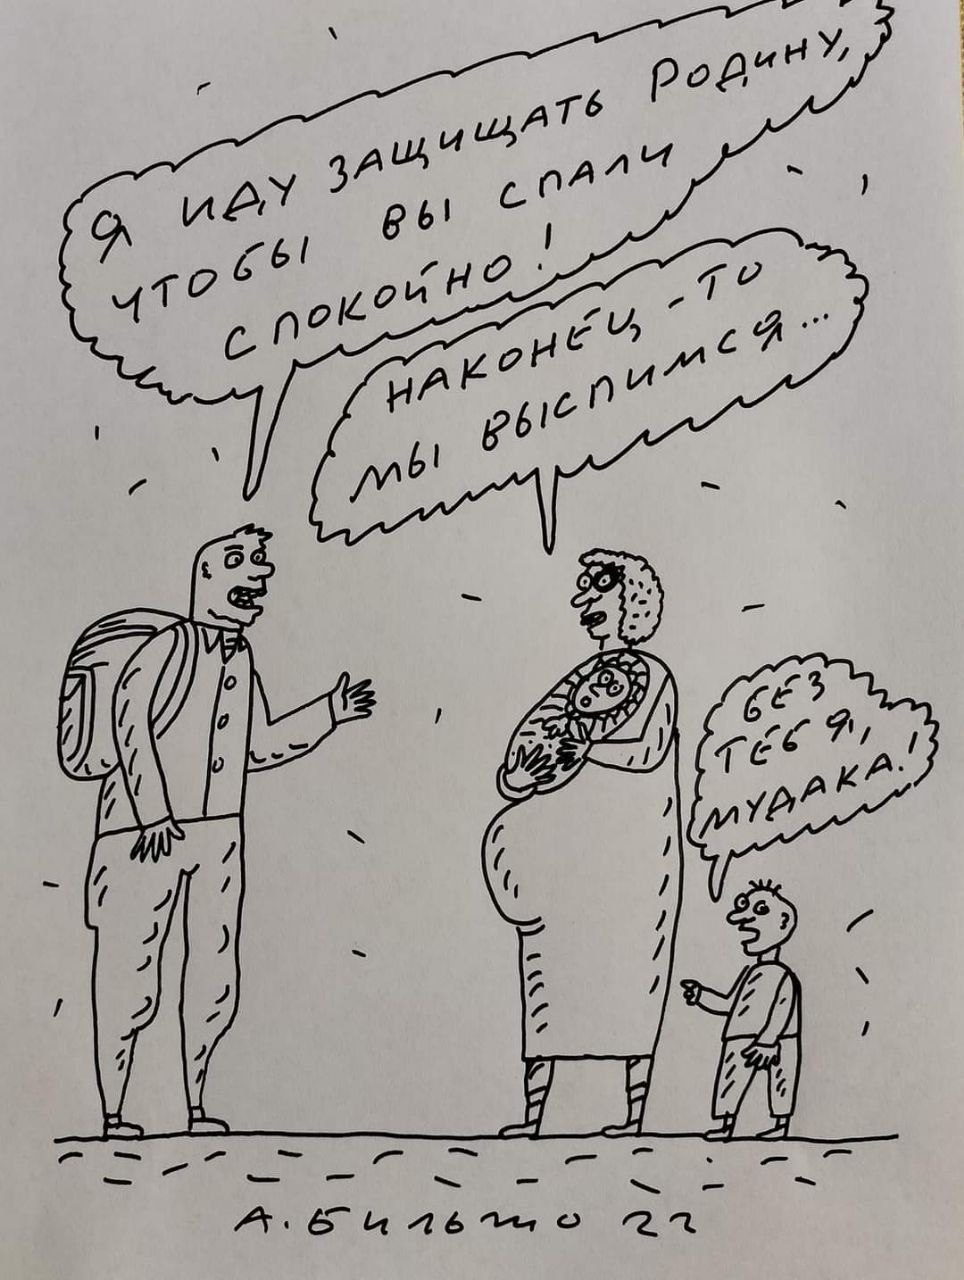 Я ИДУ ЗАЩИЩАТЬ РОДИНУ,
ЧТОБЫ ВЫ СПАЛИ
СПОКОЙНО!
НАКОНЕЦ-ТО
МЫ ВЫСПИМСЯ...
БЕЗ
ТЕБЯ,
МУДАКА!
А. БИЛЬЖО 22